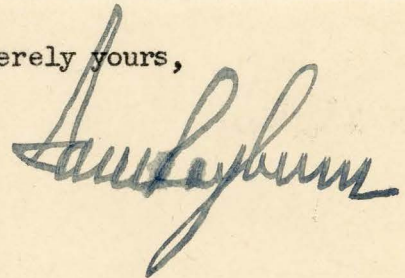 erely yours,
Sam Rayburn